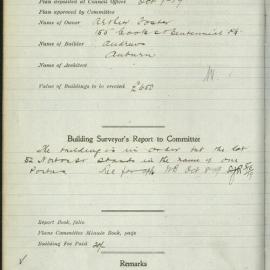 Plan deposited at Council Office Oct 1-19
Plan approved by Committee
Name of Owner Arthur Foster
150 Cook St Centennial Pk
Name of Builder Andrews
Auburn
Name of Architect
Value of Buildings to be erected £
Building Surveyor's Report to Committee
The building is in order but the lot
52 stands in the name of one
See for
Oct 8-19
Report Book, folio
Plans Committee Minute Book, page
Building Fee Paid
Remarks